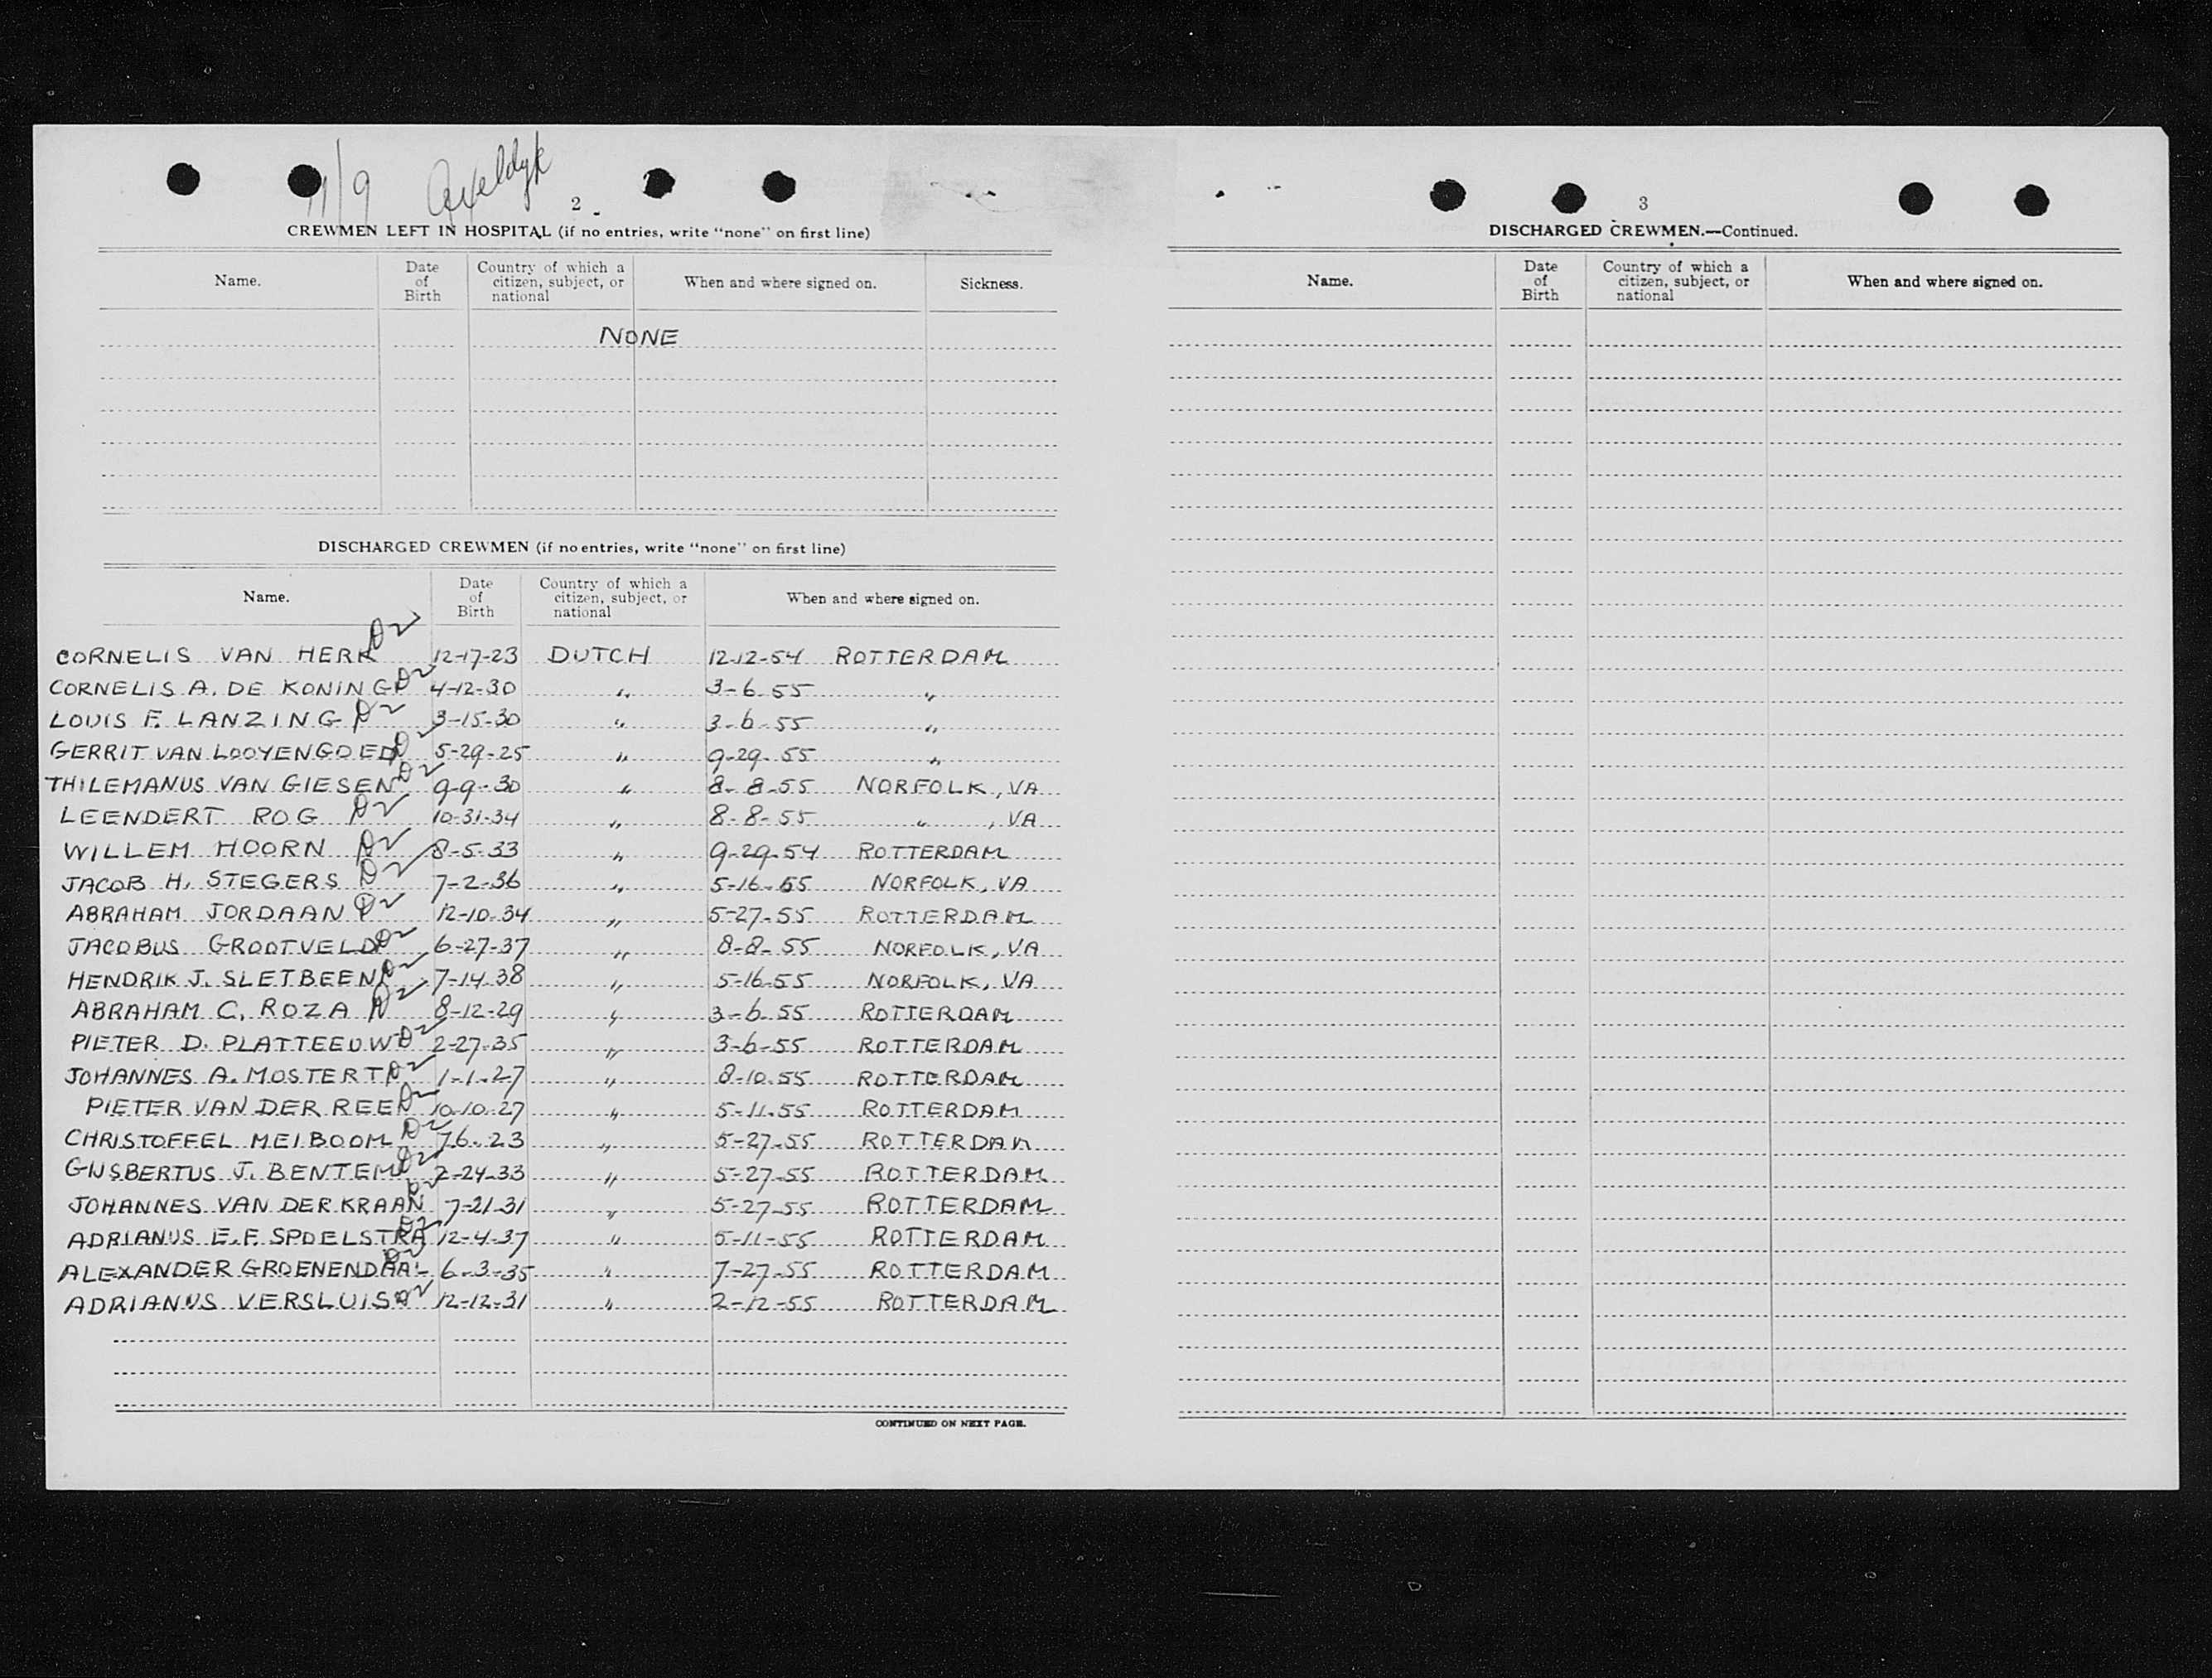 11/9 Axeldyk
2
CREWMEN LEFT IN HOSPITAL (if no entries, write "none" on first line)
Name. Date of Birth Country of which a citizen, subject, or national When and where signed on. Sickness.
NONE
DISCHARGED CREWMEN (if no entries, write "none" on first line)
Name. Date of Birth Country of which a citizen, subject, or national When and where signed on.
CORNELIS VAN HERK D2 12-17-23 DUTCH 12-12-54 ROTTERDAM
CORNELIS A. DE KONING D2 4-12-30 " 3-6-55 "
LOUIS F. LANZING D2 3-15-30 " 3-6-55 "
GERRIT VAN LOOYENGOED D2 5-29-25 " 9-29-55 "
THILEMANUS VAN GIESEN D2 9-9-30 " 8-8-55 NORFOLK, VA
LEENDERT ROG D2 10-31-34 " 8-8-55 " , VA
WILLEM HOORN D2 8-5-33 " 9-29-54 ROTTERDAM
JACOB H. STEGERS D2 7-2-36 " 5-16-55 NORFOLK, VA
ABRAHAM JORDAAN D2 12-10-34 " 5-27-55 ROTTERDAM
JACOBUS GROOTVELD D2 6-27-37 " 8-8-55 NORFOLK, VA
HENDRIK J. SLETBEEN D2 7-14-38 " 5-16-55 NORFOLK, VA
ABRAHAM C. ROZA D2 8-12-29 " 3-6-55 ROTTERDAM
PIETER D. PLATTEEUW D2 2-27-35 " 3-6-55 ROTTERDAM
JOHANNES A. MOSTERT D2 1-1-27 " 8-10-55 ROTTERDAM
PIETER VAN DER REE D2 10-10-27 " 5-11-55 ROTTERDAM
CHRISTOFFEL MEIBOOM D2 7-6-23 " 5-27-55 ROTTERDAM
GIJSBERTUS J. BENTEM D2 2-24-33 " 5-27-55 ROTTERDAM
JOHANNES VAN DER KRAAN D2 7-21-31 " 5-27-55 ROTTERDAM
ADRIANUS E.F. SPOELSTRA D2 12-4-37 " 5-11-55 ROTTERDAM
ALEXANDER GROENENDAAL D2 6-3-35 " 7-27-55 ROTTERDAM
ADRIANUS VERSLUIS D2 12-12-31 " 2-12-55 ROTTERDAM
CONTINUED ON NEXT PAGE.
3
DISCHARGED CREWMEN.—Continued.
Name. Date of Birth Country of which a citizen, subject, or national When and where signed on.